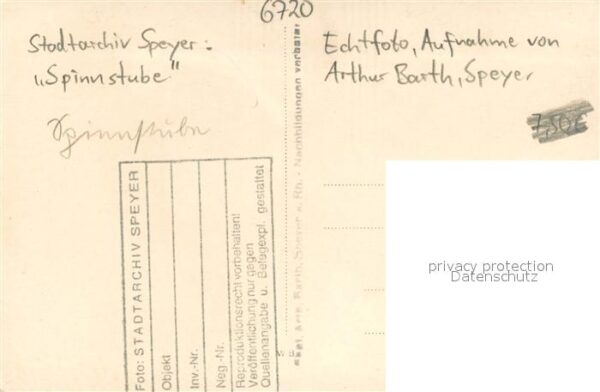 6720
Stadtarchiv Speyer:
„Spinnstube"
Spinnstube
Echtfoto, Aufnahme von
Arthur Barth, Speyer
7,50€
Foto: STADTARCHIV SPEYER
Objekt
Inv.-Nr.
Neg.-Nr.
Reproduktionsrecht vorbehalten!
Veröffentlichung nur gegen
Quellenangabe u. Belegexpl. gestattet
Barth, Speyer a. Rh. - Nachbildungen verboten
privacy protection
Datenschutz